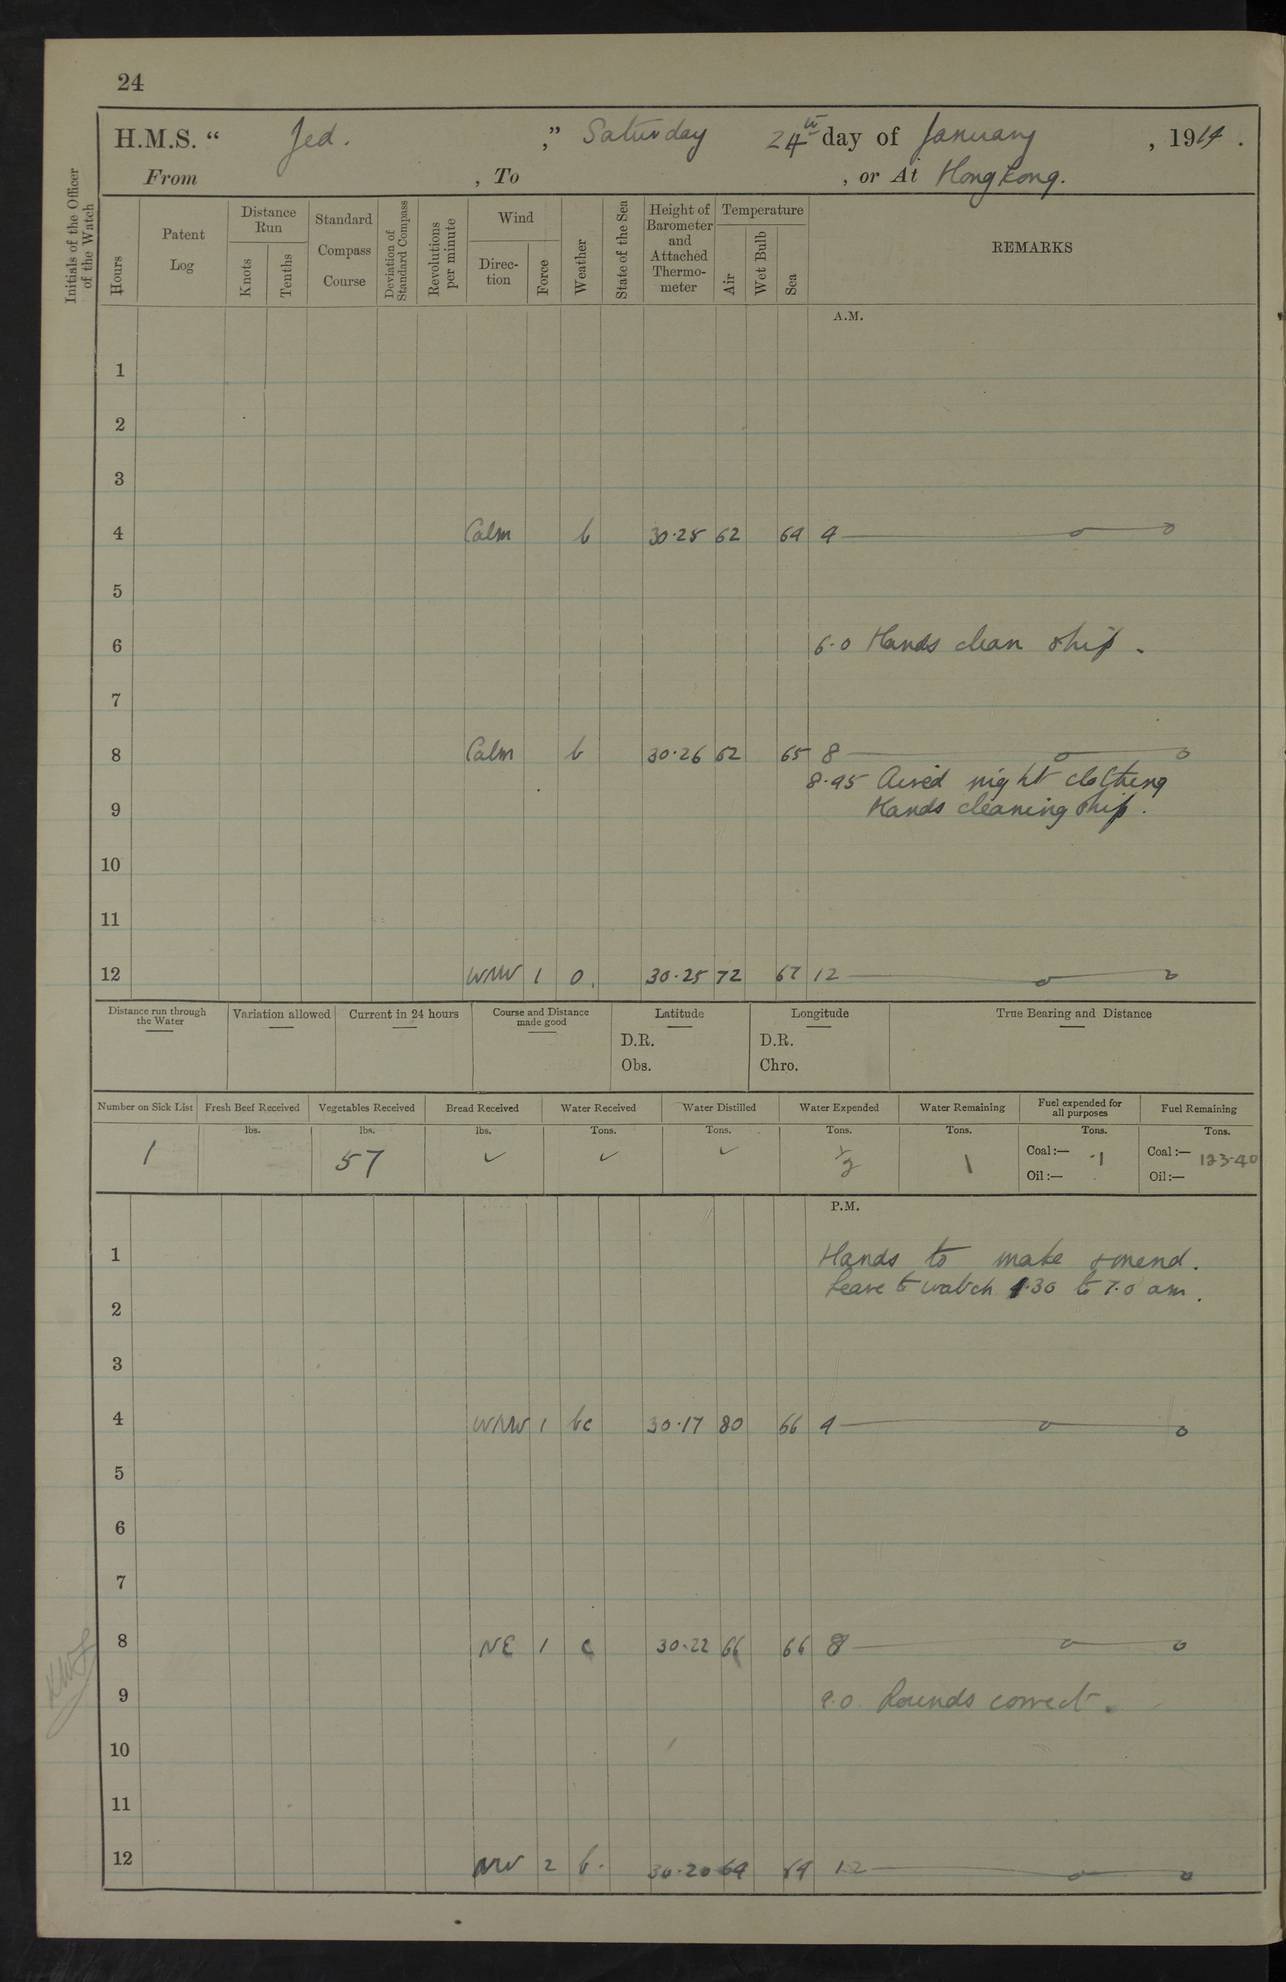 24
H.M.S. “ Jed. ,” Saturday 24th day of January , 1914 .
From , To , or At Hong Kong.
Initials of the Officer of the Watch
Hours
Patent Log
Distance Run
Knots
Tenths
Standard Compass Course
Deviation of Standard Compass
Revolutions per minute
Wind
Direction
Force
Weather
State of the Sea
Height of Barometer and Attached Thermometer
Temperature
Air
Wet Bulb
Sea
REMARKS
A.M.
1
2
3
4 Calm b 30·25 62 64 4
5
6 6·0 Hands clean ship.
7
8 Calm b 30·26 62 65 8
8·45 Aired night clothing
9 Hands cleaning ship.
10
11
12 WNW 1 o. 30·25 72 67 12
Distance run through the Water
Variation allowed
Current in 24 hours
Course and Distance made good
Latitude
D.R.
Obs.
Longitude
D.R.
Chro.
True Bearing and Distance
Number on Sick List
Fresh Beef Received
Vegetables Received
Bread Received
Water Received
Water Distilled
Water Expended
Water Remaining
Fuel expended for all purposes
Fuel Remaining
lbs. lbs. lbs. Tons. Tons. Tons. Tons. Tons. Tons.
1 57 ✓ ✓ ✓ ½ 1 Coal:— ·1 Coal:— 123·40
Oil:— Oil:—
P.M.
1 Hands to make & mend.
Leave to watch 1·30 to 7·0 am.
2
3
4 WNW 1 bc 30·17 80 66 4
5
6
7
8 NE 1 c 30·22 66 66 8
9 9.0. Rounds correct.
10
11
12 NW 2 b. 30·20 64 64 12